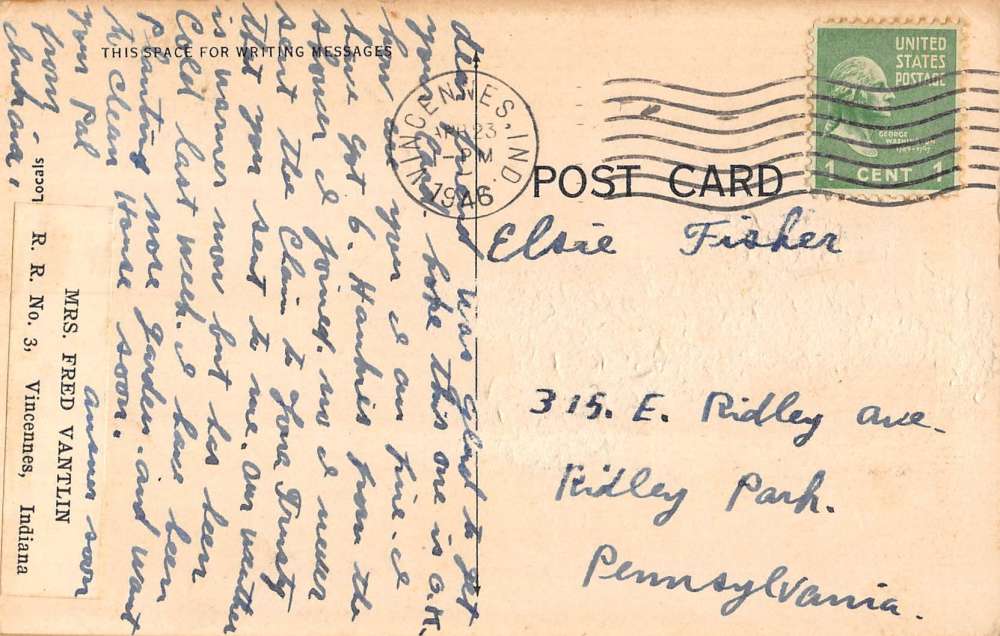 THIS SPACE FOR WRITING MESSAGES
dear friend was glad to get
your Chain. hope this one is O.K.
how are you I am fine. I
have got 6. Hankies from the
shower I joined. no I never
sent the Chain to Lona Trusty
that you sent to me. Our weather
is warmer now but has been
Cold last week. I have been
planting more garden. and want
to clean House soon.
your pal answer soon
from -
MRS. FRED VANTLIN
R. R. No. 3, Vincennes, Indiana
Locals
VINCENNES, IND.
APR 23
1 PM
1946
UNITED
STATES
POSTAGE
GEORGE
WASHINGTON
1789-1797
1 CENT 1
POST CARD
Elsie Fisher
315. E. Ridley ave.
Ridley Park.
Pennsylvania.